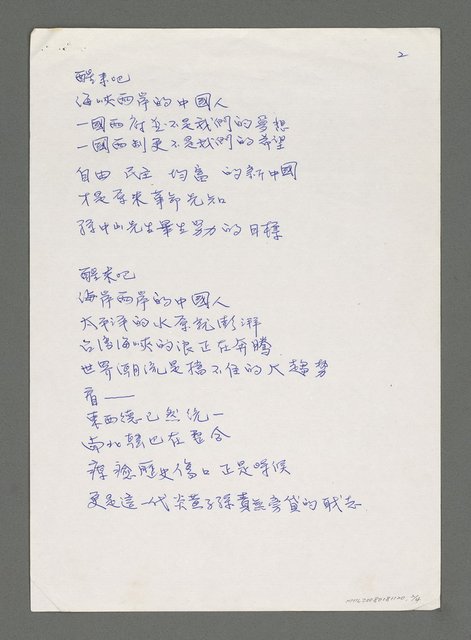 2
醒來吧
海峽兩岸的中國人
一國兩府並不是我們的夢想
一國兩制更不是我們的希望
自由 民主 均富 的新中國
才是原來革命先知
孫中山先生畢生努力的目標
醒來吧
海岸兩岸的中國人
太平洋的水原就澎湃
台灣海峽的浪正在奔騰
世界潮流是擋不住的大趨勢
看——
東西德已然統一
南北韓已在整合
療癒歷史傷口正是時候
更是這一代炎黃子孫責無旁貸的職志